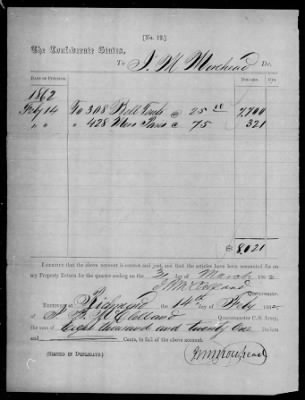 [No. 12.]
The Confederate States,
To J. M. Morehead Dr.
DATE OF PURCHASE. DOLLARS CTS.
1862
Feby 14 To 308 Bell Tents @ 25 00 7,700
" " " 428 @ 75 321
$ 8021
I CERTIFY that the above account is correct and just, and that the articles have been accounted for on
my Property Return for the quarter ending on the 31 day of March 186
RECEIVED at Richmond the 14th of Feby 1862
of Quartermaster C. S. Army,
the sum of Eight thousand and twenty One
Dollars and Cents, in full of the above account.
(SIGNED IN DUPLICATE.) J M Morehead